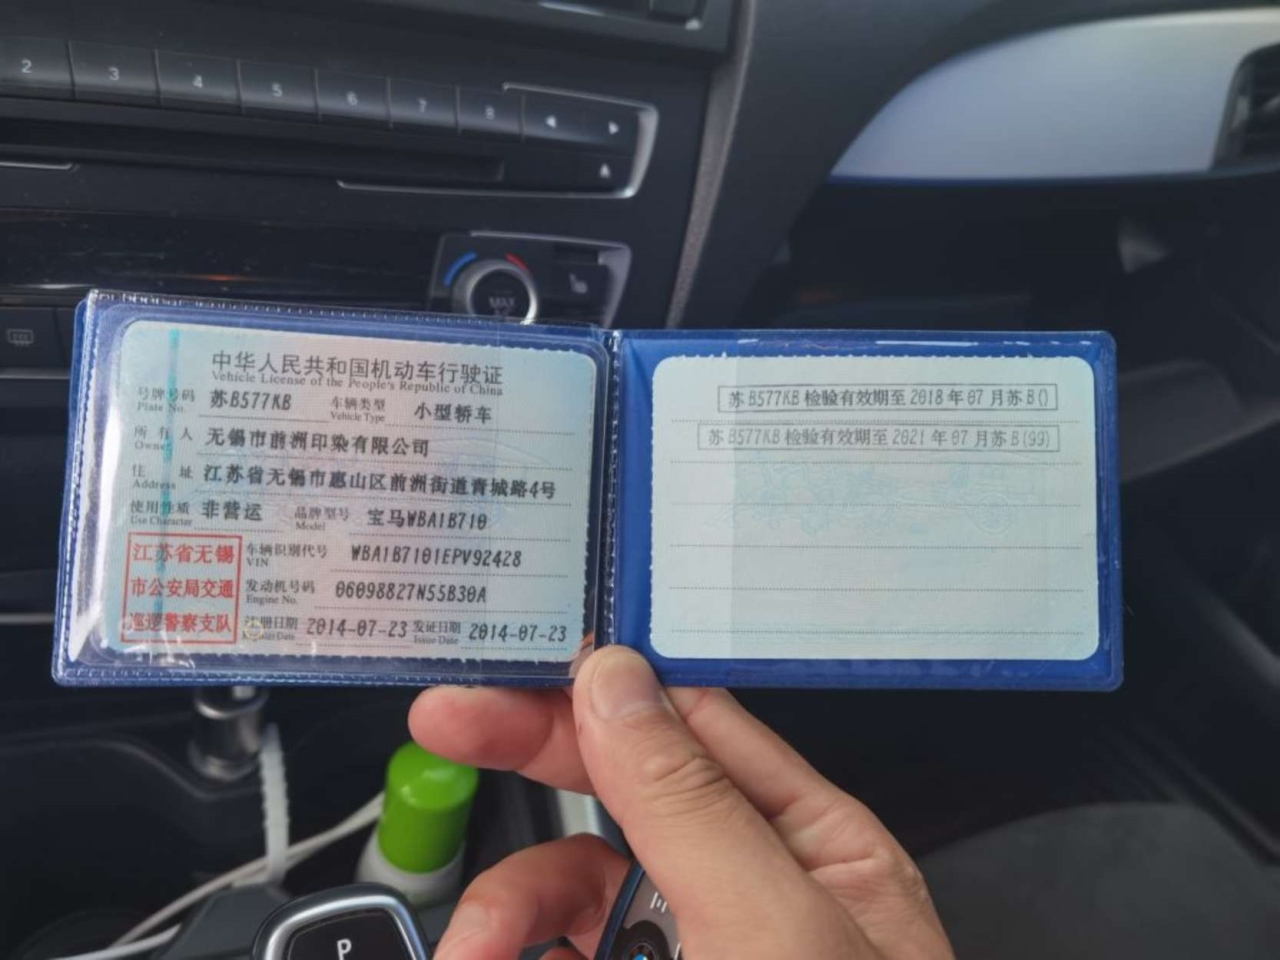 2 3 4 5 6 7 8
MAX
中华人民共和国机动车行驶证
Vehicle License of the People's Republic of China
号牌号码 苏B577KB 车辆类型 小型轿车
Plate No. Vehicle Type
所有人 无锡市前洲印染有限公司
Owner
住址 江苏省无锡市惠山区前洲街道青城路4号
Address
使用性质 非营运 品牌型号 宝马WBA1B710
Use Character Model
江苏省无锡
市公安局交通
巡逻警察支队
车辆识别代号 WBA1B7101EPV92428
VIN
发动机号码 06098827N55B30A
Engine No.
注册日期 2014-07-23 发证日期 2014-07-23
Issue Date
苏B577KB检验有效期至2018年07月苏B()
苏B577KB检验有效期至2021年07月苏B(99)
P